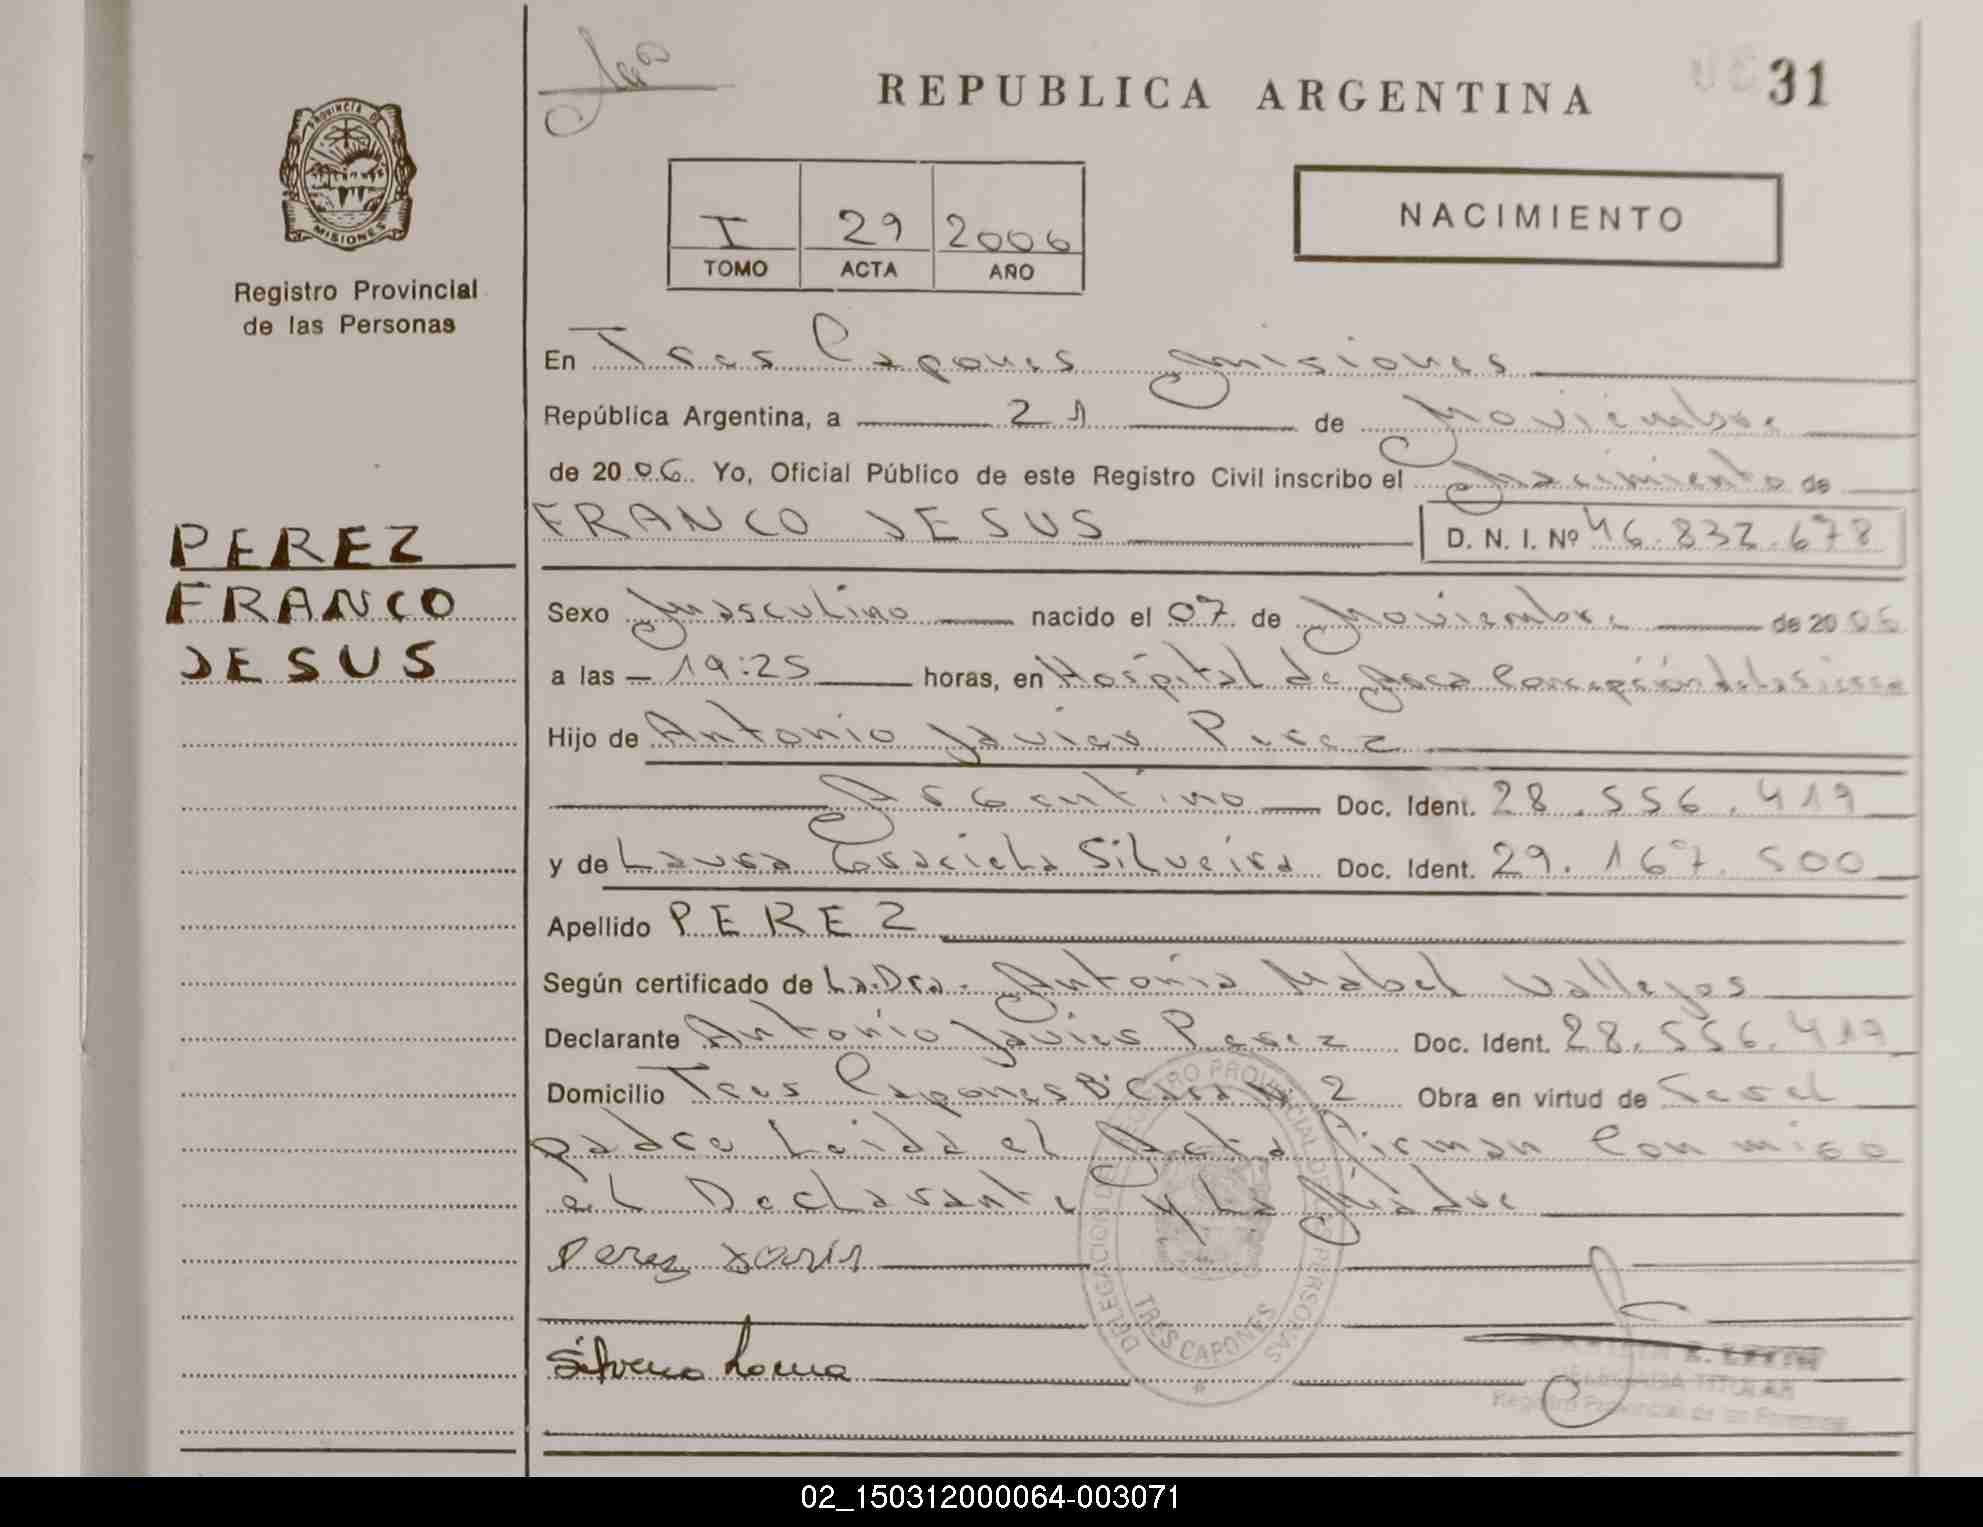 31
REPUBLICA ARGENTINA
PROVINCIA DE
MISIONES
Registro Provincial
de las Personas
I 29 2006
TOMO ACTA AÑO
NACIMIENTO
En Tres Capones Misiones
República Argentina, a 21 de Noviembre
de 2006 Yo, Oficial Público de este Registro Civil inscribo el Nacimiento de
FRANCO JESUS D. N. I. Nº 46.832.678
PEREZ
FRANCO
JESUS
Sexo Masculino nacido el 07 de Noviembre de 2006
a las 19:25 horas, en Hospital de Area Concepción de la Sierra
Hijo de Antonio Javier Perez
Argentino Doc. Ident. 28.556.419
y de Laura Graciela Silveira Doc. Ident. 29.167.500
Apellido PEREZ
Según certificado de La Dra. Antonia Mabel Vallejos
Declarante Antonio Javier Perez Doc. Ident. 28.556.419
Domicilio Tres Capones Bº Casa Nº 2 Obra en virtud de Ser el
padre Leida el Acta Firman Con migo
el Declarante y La Madre
Perez
REGISTRO PROVINCIAL DE LAS PERSONAS
DELEGACION DE
TRES CAPONES
DELEGADA TITULAR
Registro Provincial de las Personas
02_150312000064-003071